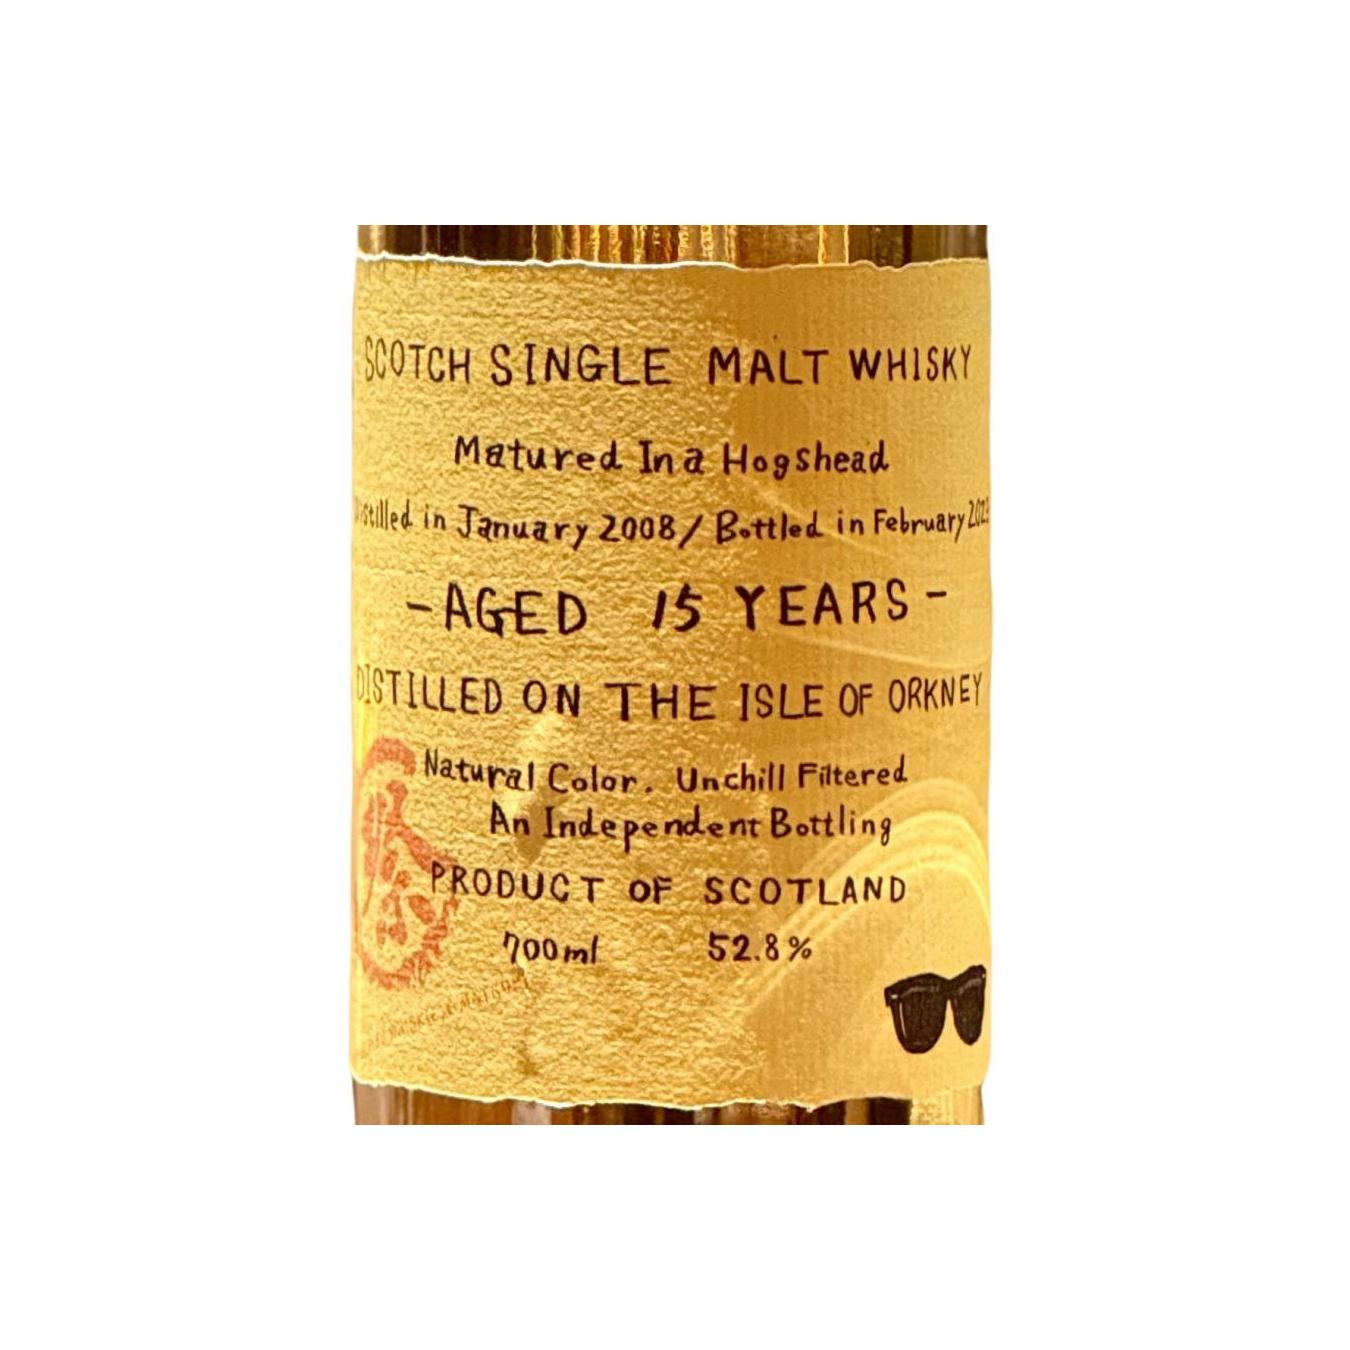 SCOTCH SINGLE MALT WHISKY
Matured In a Hogshead
Distilled in January 2008 / Bottled in February 2023
-AGED 15 YEARS-
DISTILLED ON THE ISLE OF ORKNEY
Natural Color. Unchill Filtered
An Independent Bottling
PRODUCT OF SCOTLAND
700ml 52.8%